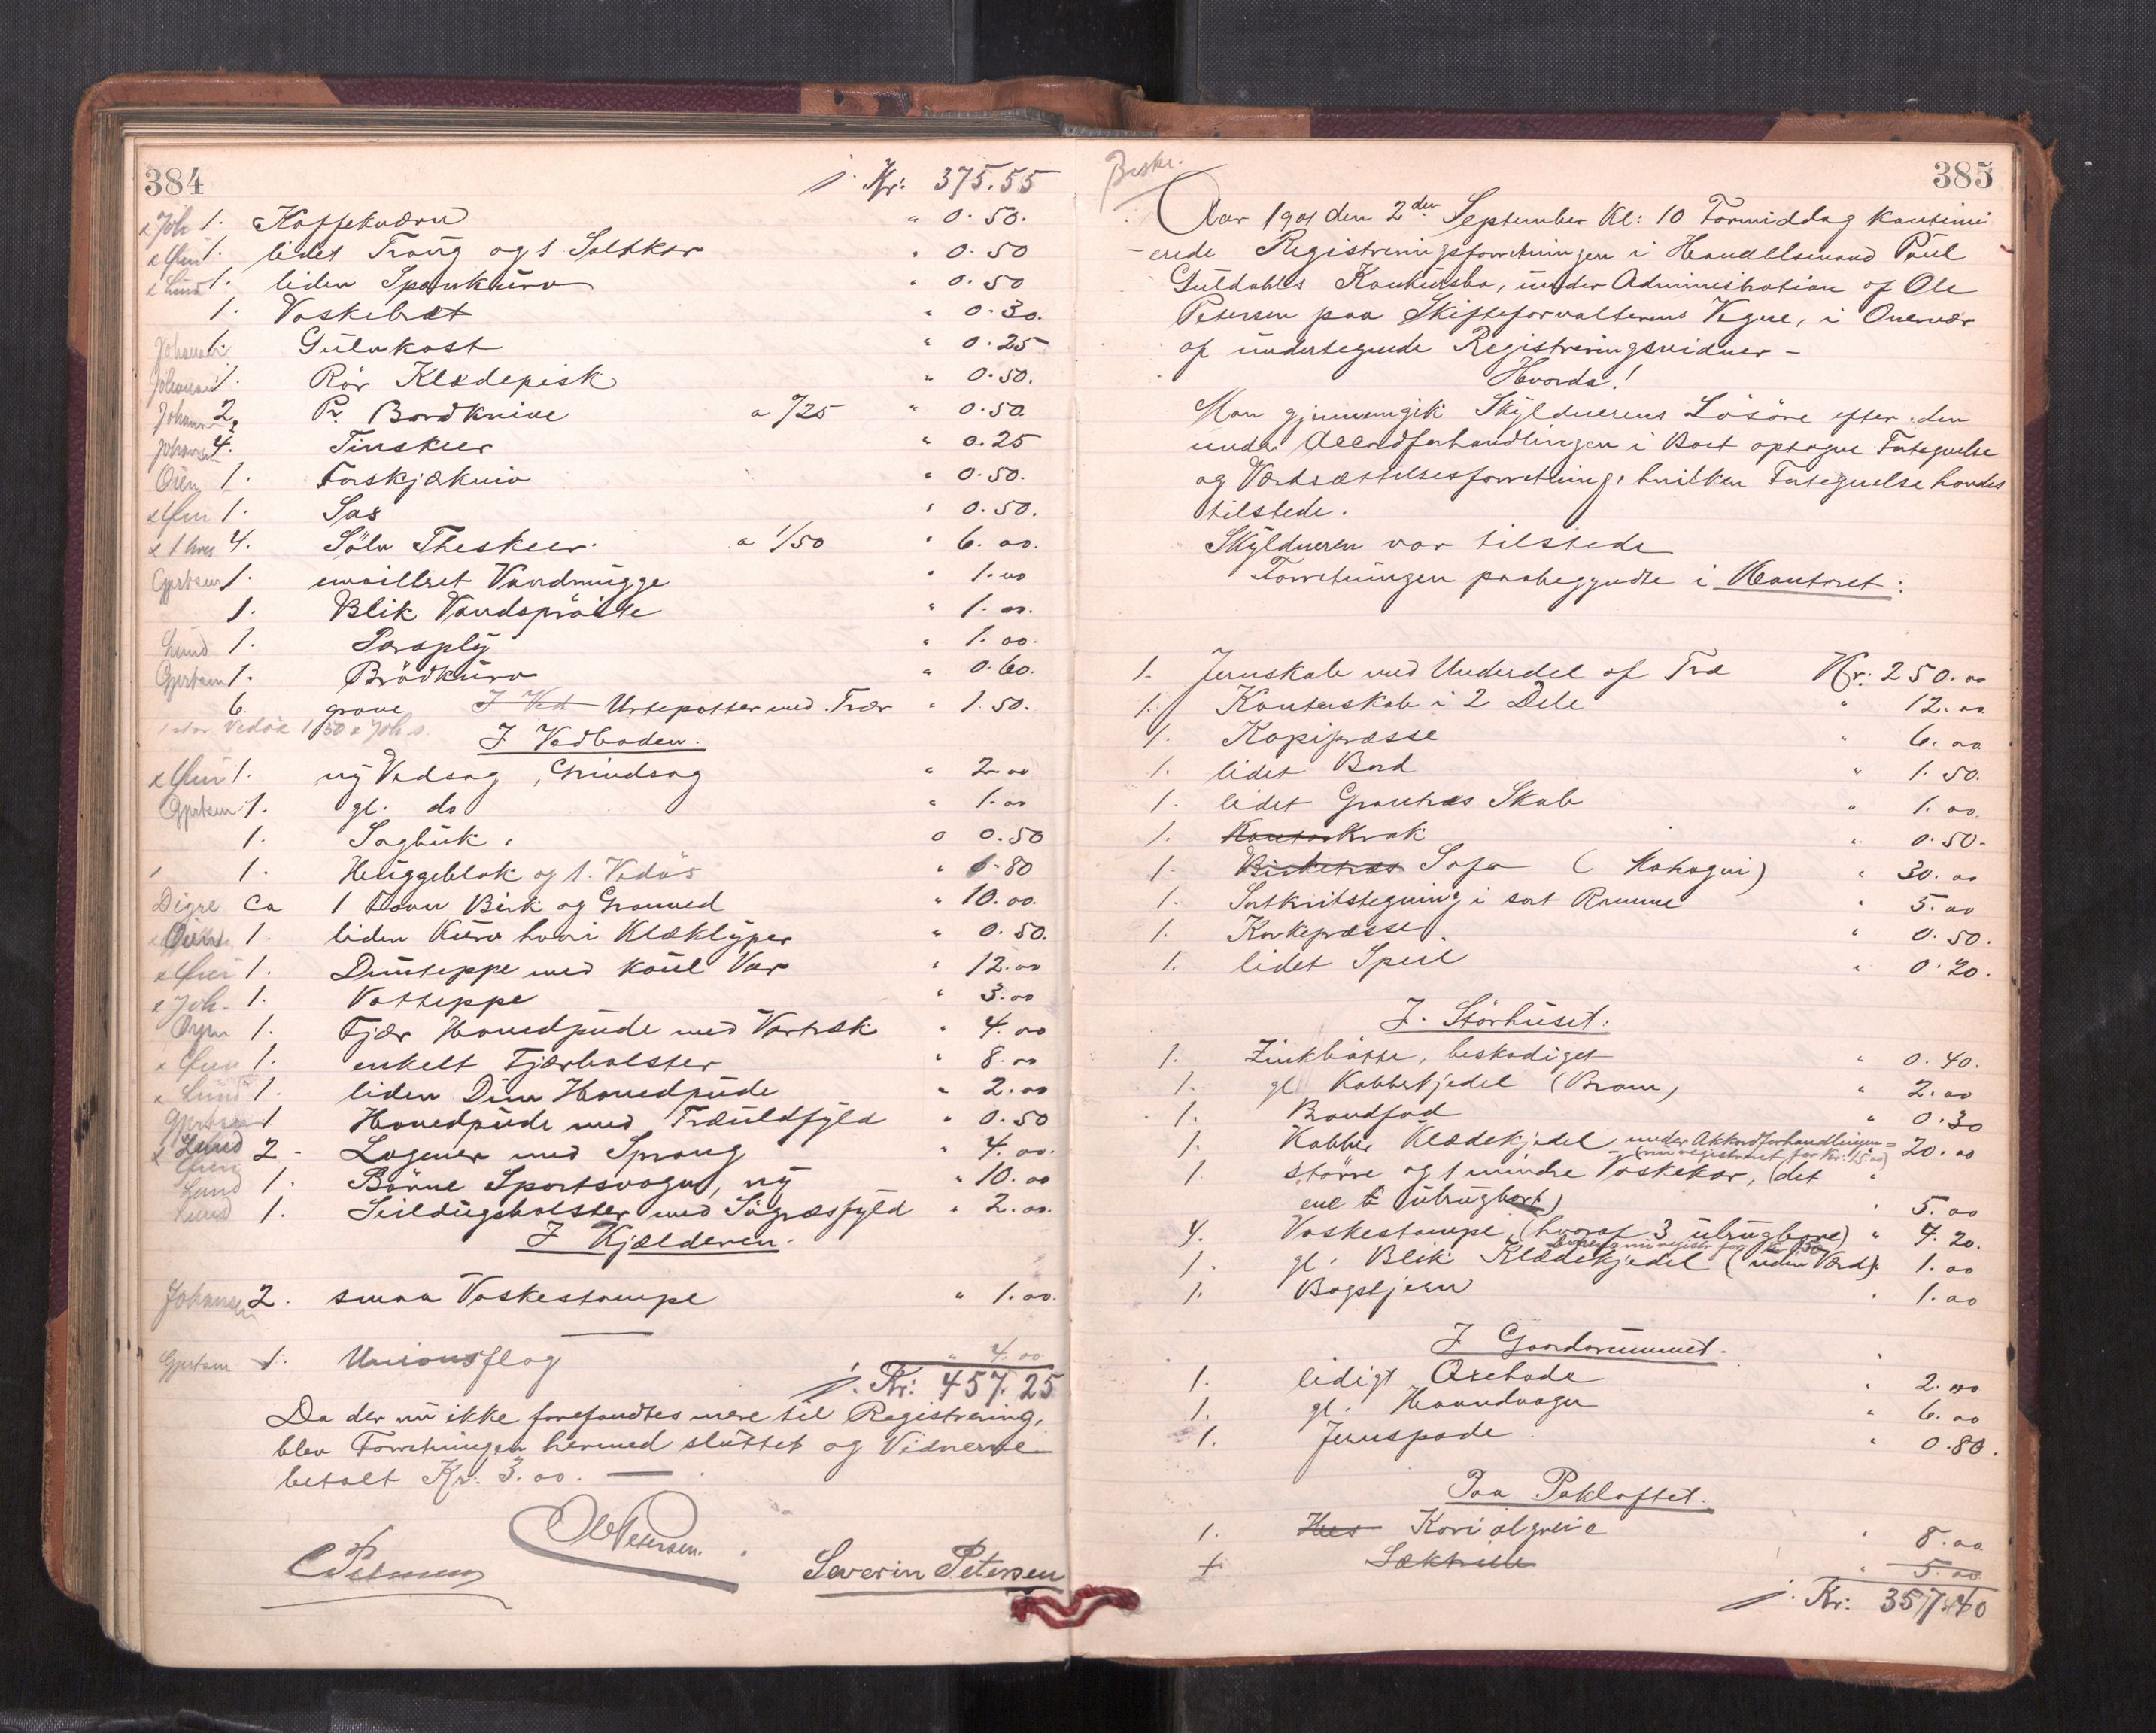 384
Kr: 375.55
x Joh 1. Kaffekværn " 0.50.
1. lidet Traug og 1 Saltkar " 0.50
x Lund 1. liden Spankurv " 0.50
1. Vaskebræt " 0.30.
Johansen 1. Gulvkost " 0.25
Johansen 1. Rör Klædepisk " 0.50.
Johansen 2 Pr. Bordknive a %25 " 0.50.
Johansen 4. Tinskeer " 0.25
Öien 1. Forskjækniv " 0.50.
1. Sax " 0.50.
4. Sölv Theskeer. a 1/50 " 6.00.
Gjertsen 1. emailleret Vandmugge " 1.00
1. Blik Vandspröite " 1.00.
Lund 1. Paraply " 1.00.
Gjertsen 1. Brödkurv " 0.60.
6. grove I Ved Urtepotter med Trær " 1.50.
I Vedboden.
1. ny Vedsag, Grindsag " 2.00
Gjertsen 1. gl. do " 1.00
1. Sagbuk. " 0.50
1. Huggeblok og 1. Vedös " 0.80
Digre Ca 1 Favn Birk og Granved " 10.00.
1. liden Kurv hvori Klæklyper " 0.50.
1. Dunteppe med Var " 12.00
x Joh. 1. Vatteppe " 3.00
1. Fjær Hovedpude med Vartræk " 4.00
1. enkelt Fjærbolster " 8.00
x Lund 1. liden Dun Hovedpude " 2.00
Gjertsen 1 Hovedpude med Træuldfyld " 0.50
x Lund 2 - Lagener med Sprang " 4.00.
Lund 1. Börne Sportsvogn, ny " 10.00
Lund 1. Seildugsbolster med Sögræsfyld " 2.00.
I Kjælderen.
Johansen 2. smaa Vaskestampe " 1.00.
Gjertsen 1. Unionsflag " 4.00
Kr: 457.25
Da der nu ikke forefandtes mere til Registrering,
blev Forretningen hermed sluttet og Vidnerne
betalt Kr. 3.00. —
Ole Petersen.
Severin Petersen
385
Beskr.
Aar 1901 den 2den September Kl: 10 Formiddag kontinu
-erede Registreringsforretningen i Handelsmand Paul
Guldahls Konkursbo, under Administration af Ole
Petersen paa Skifteforvalterens Vegne, i Overvær
af undertegnede Registreringsvidner -
Hvorda!
Man gjennemgik Skyldnerens Lösöre efter den
under Accordforhandlingen i Boet optagne Fortegnelse
og Værdsættelsesforretning, hvilken Fortegnelse havdes
tilstede.
Skyldneren var tilstede
Forretningen paabegyndte i Kontoret:
1. Jernskab med Underdel af Træ Kr: 250.00
1. Kontorskab i 2 Dele " 12.00
1. Kopipresse " 6.00
1. lidet Bord " 1.50.
1. lidet Grantræs Skab " 1.00.
1. Kontorkrak " 0.50.
1. Birketræs Sofa (Mahogni) " 30.00
1. Sortkritstegning i sort Ramme " 5.00
1. Korkepresse. " 0.50.
1. lidet Speil " 0.20.
I. Störhuset:
1. Zinkbötte, beskadiget " 0.40.
1. gl Kobberkjedel (Bram) " 2.00
1. Brandfad " 0.30
1. Kobber Klædekjedel under Akkordforhandlingen " 20.00
(nu registreret for Kr: 15.00)
1. större og 1 mindre Vaskekar, (det "
ene ubrugbart) " 5.00
4. Vaskestampe (hvoraf 3 ubrugbare) " 4.20.
1. gl. Blik Klædekjedel (uden Værd) " 1.00
1. Bagstjern " 1.00
I Gaardsrummet.
1. ledigt Oxehode " 2.00
1. gl. Haandvogn " 6.00
1. Jernspade " 0.80.
Paa Pakloftet.
1. Hes Kariolgreie " 8.00
1 Sæktrille " 5.00
Kr: 357.40